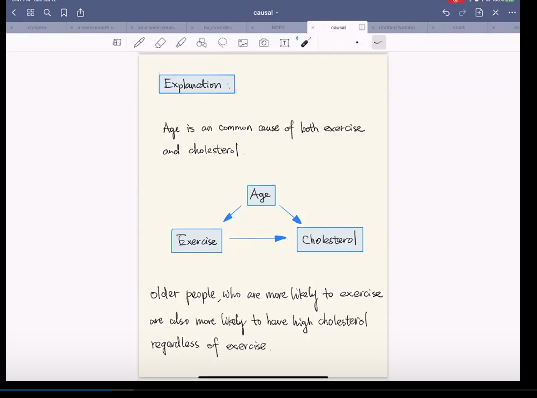 causal
causal
Explanation :
Age is an common cause of both exercise
and cholesterol.
Age
Exercise
Cholesterol
older people, who are more likely to exercise
are also more likely to have high cholesterol
regardless of exercise.